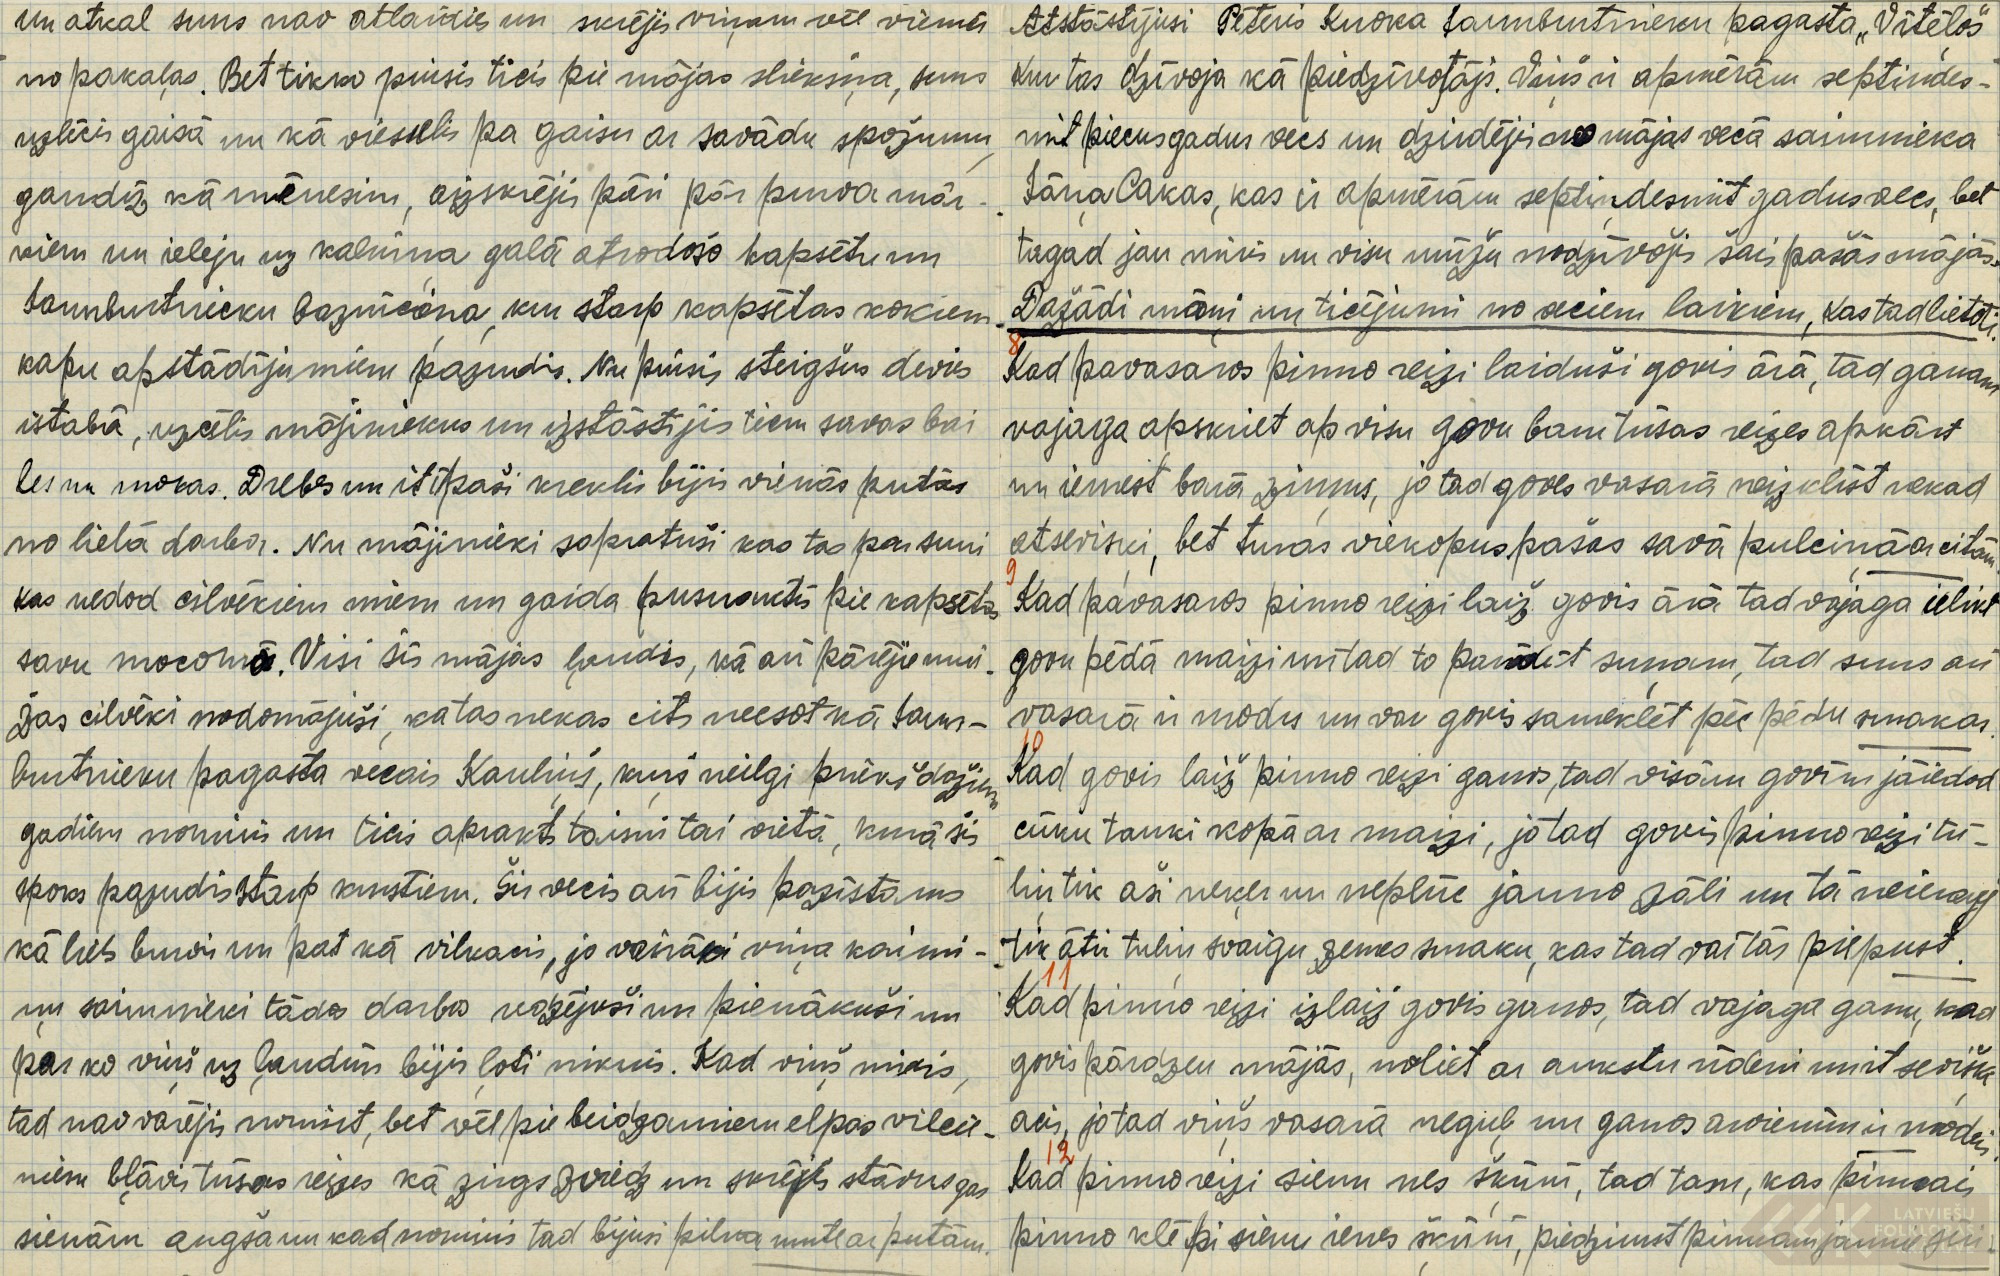 un atkal suns nav atlaidies un skrējis viņam vēl vienmēr
no pakaļas. Bet tikko puisis ticis pie mājas sliekšņa, suns
uzlēcis gaisā un kā viesulis pa gaisu ar savādu spožumu,
gandrīz kā mēnesim, aizskrējis pāri pār purva mār-
kiem un ieleju uz kalniņa galā atrodošo kapsētu un
Jaunburtnieku baznīciņa, kur starp kapsētas kokiem
kapu apstādījumiem pazudis. Nu puisis steigšus devies
istabā, uzcēlis mājiniekus un izstāstījis tiem savas bai
les un mokas. Drebes un it īpaši krekls bijis vienās putās
no lielā darba. Nu mājinieki sapratuši kas tas par suni
kas nedod cilvēkiem mieru un gaida pusnaktīs pie kapsētas
savu mocāmo. Visi šīs mājas ļaudis, kā arī pārējie mui-
žas cilvēki nodomājuši, ka tas nekas cits neesot kā Jaun-
burtnieku pagasta vecais Kauliņš, kuŗš neilgi priekš dažiem
gadiem nomiris un ticis aprakts taisni tai vietā, kurā šis
spoks pazudis starp krustiem. Šis vecis arī bijis pazīstams
kā liels burvis un pat kā vilkacis, jo vairāki viņa kaimi-
ņu saimnieki tādos darbos redzējuši un pienākuši un
par ko viņš uz ļaudīm bijis ļoti nikns. Kad viņš miris,
tad nav varējis nomirt, bet vēl pie beidzamiem elpas vilcie-
niem bļāvis tūsas reizes kā zirgs zviedz un skrējis stāvus gar
sienām augšā un kad nomiris tad bijusi pilna mute ar putām.
Atstāstījusi Pēteris Knoka Jaunburtnieku pagasta „Vītēlos"
kur tas dzīvoja kā piedzīvotājs. Viņš ir apmēram septiņdes-
mit piecus gadus vecs un dzirdējis no mājas vecā saimnieka
Jāņa Cakas, kas ir apmēram septiņdesmit gadus vecs, bet
tagad jau miris un visu mūžu nodzīvojis šais pašās mājās.
Dažādi māņi un ticējumi no veciem laikiem, kas tad lietoti.
8
Kad pavasaros pirmo reizi laiduši govis ārā, tad ganam
vajaga apskriet ap visu govu baru tūsas reizes apkārt
un iemest barā zirņus, jo tad govs vasarā neizklīst nekad
atsevišķi, bet turas vienkopus pašas savā pulciņā ar citām.
9
Kad pavasaros pirmo reizi laiž govis ārā tad vajaga ielikt
govu pēdā maizi un tad to parādīt sunam, tad suns arī
vasarā ir modrs un var govis sameklēt pēc pēdu smakas.
10
Kad govis laiž pirmo reizi ganos, tad visām govīm jāiedod
cūku tauki kopā ar maizi, jo tad govis pirmo reizi tū-
liņ tik aši neķer un neplūc jauno zāli un tā neierauj
tik ātri tuliņ svaigu zemes smaku, kas tad var tās piepūst.
11
Kad pirmo reizi izlaiž govis ganos, tad vajaga ganu, kad
govis pārdzen mājās, noliet ar aukstu ūdeni un it sevišķi
acis, jo tad viņš vasarā neguļ un ganos arvienu ir modrs.
12
Kad pirmo reizi sienu nes šķūnī, tad tam, kas pirmais
pirmo klēpi sienu ienes šķūnī, piedzimst pirmam jauns
LATVIEŠU
FOLKLORAS